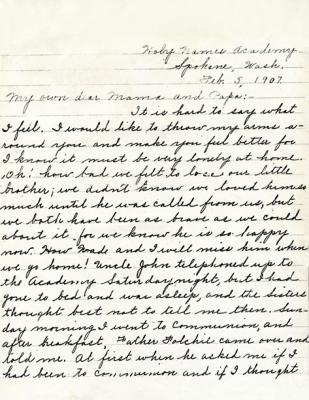 Holy Names Academy
Spokane, Wash.
Feb. 5, 1907.
My own dear Mama and Papa:-
It is hard to say what
I feel. I would like to throw my arms a-
round you and make you feel better for
I know it must be very lonely at home.
Oh! how bad we felt to lose our little
brother; we didn't know we loved him so
much until he was called from us, but
we both have been as brave as we could
about it, for we know he is so happy
now. How Made and I will miss him when
we go home! Uncle John telephoned up to
the Academy Saturday night, but I had
gone to bed and was asleep, and the sisters
thought best not to tell me then. Sun-
day morning I went to Communion, and
after breakfast, Father Folchie came over and
told me. At first when he asked me if I
had been to communion and if I thought